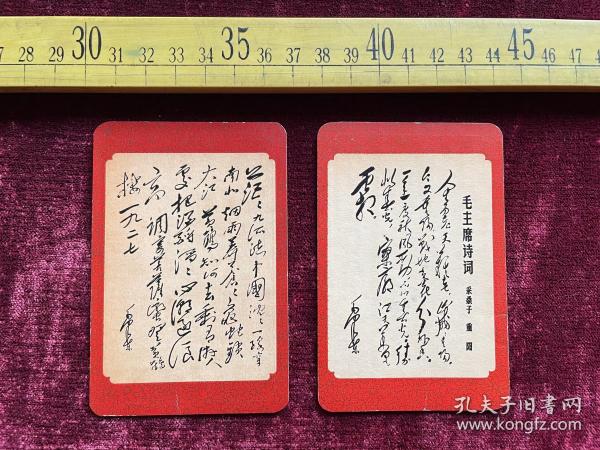 28 29 30 31 32 33 34 35 36 37 38 39 40 41 42 43 44 45 46 47
茫茫九派流中國沉沉一線穿
南北烟雨莽苍苍龟蛇鎖
大江 黄鶴知何去剩有游人
處 把酒酹滔滔心潮逐浪
高 調寄菩薩蠻登黄鶴
樓 一九二七
毛澤東
毛主席诗词
采桑子 重阳
人生易老天難老歲歲重陽
今又重陽戰地黄花分外香
一年一度秋風勁不似春光勝
似春光寥廓江天万里
霜
毛澤東
孔夫子旧书网
www.kongfz.com